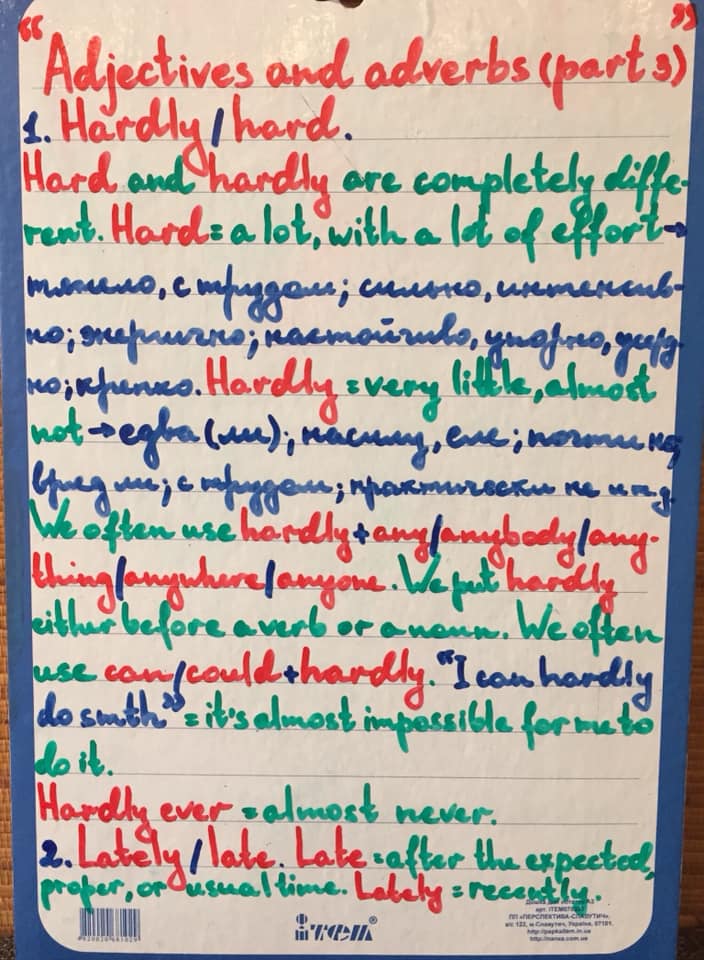 “Adjectives and adverbs (part 3)”
1. Hardly/hard.
Hard and hardly are completely diffe-
rent. Hard = a lot, with a lot of effort →
тяжело, с трудом; сильно, интенсив-
но; энергично; настойчиво, упорно, усерд-
но; крепко. Hardly = very little, almost
not → едва (ли); насилу, еле; почти не;
вряд ли; с трудом; практически не и т.д.
We often use hardly + any/anybody/any-
thing/anywhere/anyone. We put hardly
either before a verb or a noun. We often
use can/could + hardly. “I can hardly
do smth” = it's almost impossible for me to
do it.
Hardly ever = almost never.
2. Lately/late. Late = after the expected,
proper, or usual time. Lately = recently.
ітем
арт. ITEM
ПП «ПЕРСПЕКТИВА-СЛАВУТИЧ»,
а/с 122, м.Славутич, Україна, 07101.